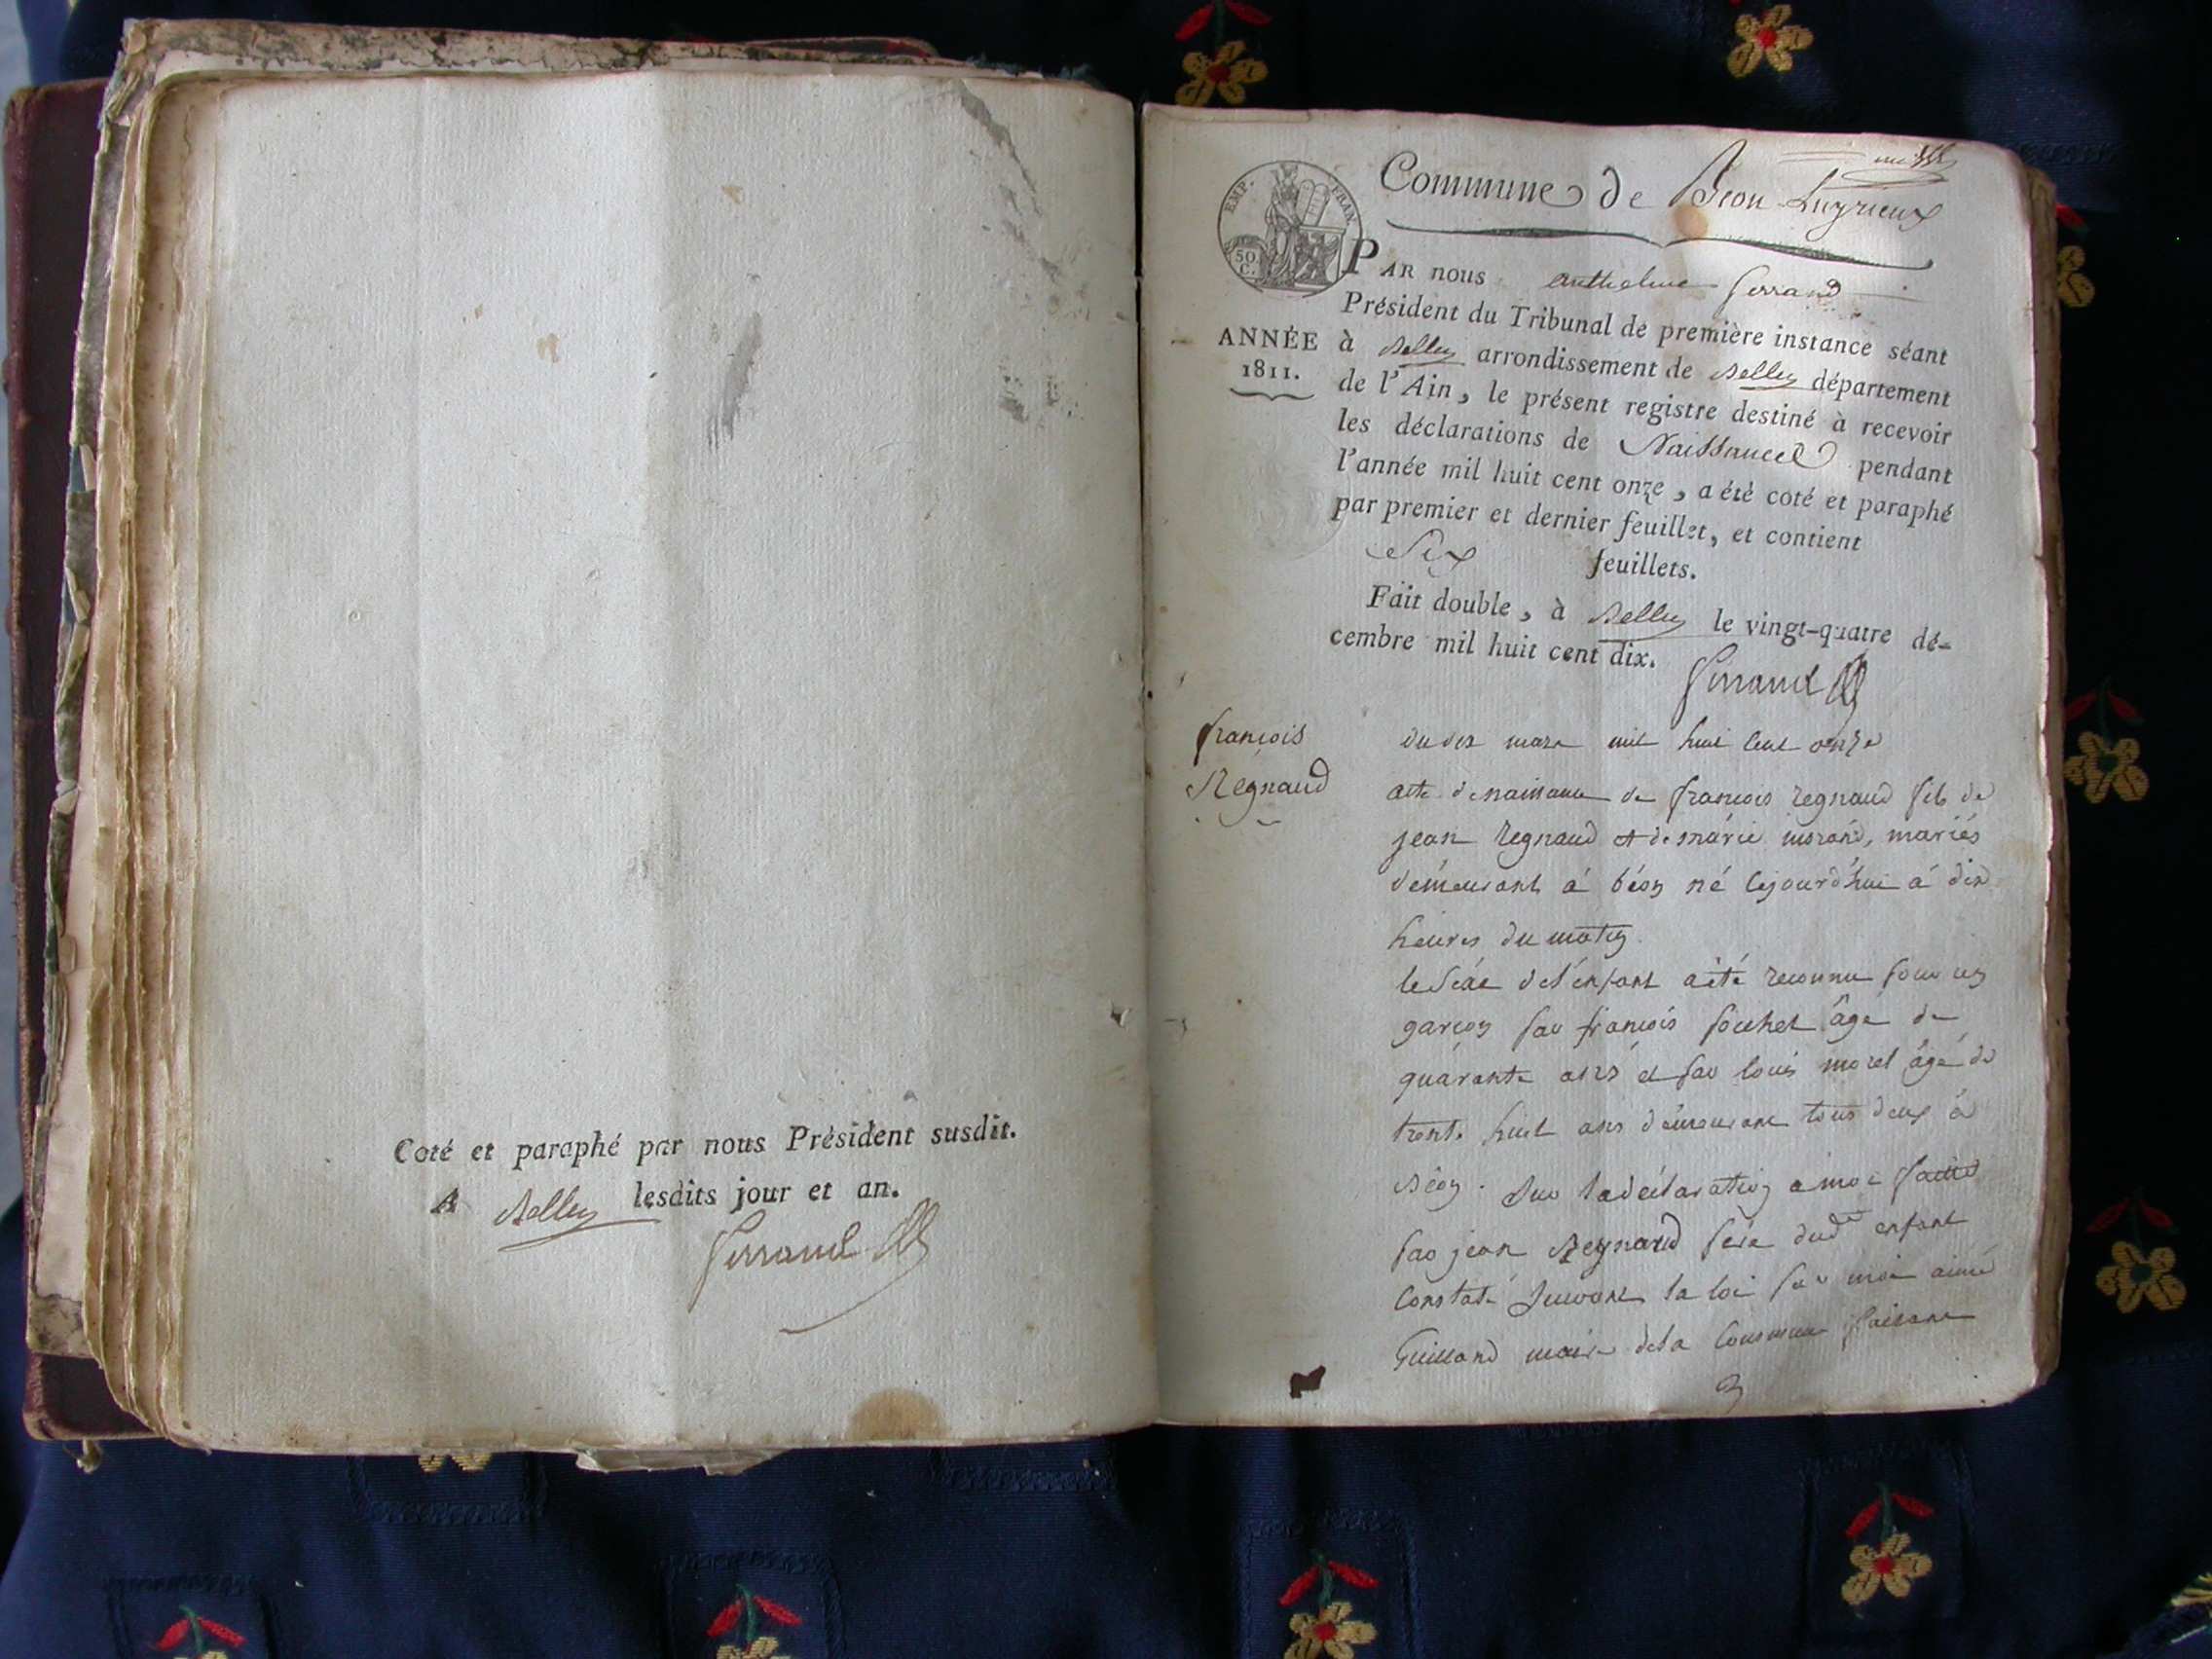 Coté et paraphé par nous Président susdit.
A Belley lesdits jour et an.
Ferrand
Commune de Béon Luyrieux
EMP. FRAN
50. C.
PAR nous Anthelme Ferrand
Président du Tribunal de première instance séant
ANNÉE
1811.
à Belley arrondissement de Belley département
de l'Ain, le présent registre destiné à recevoir
les déclarations de Naissances pendant
l'année mil huit cent onze, a été coté et paraphé
par premier et dernier feuillet, et contient
Six feuillets.
Fait double, à Belley le vingt-quatre dé-
cembre mil huit cent dix.
Ferrand
françois
Régnaud
du dix mars mil huit cent onze
acte de naissance de françois regnaud fils de
jean regnaud et de márie morand, mariés
démeurant á béon né cejourd'hui á dix
heures du matin
le sexe de l'énfant a été reconnu pour un
garçon par françois pochet âgé de
quárante ans et par louis morel âgé de
trente huit ans démeurant tous deux á
Béon. Sur la déclaration a moi faitte
par jean Regnard pére dud enfant
Constaté suivant la loi par moi aimé
Guilland maire de la Commune faisant